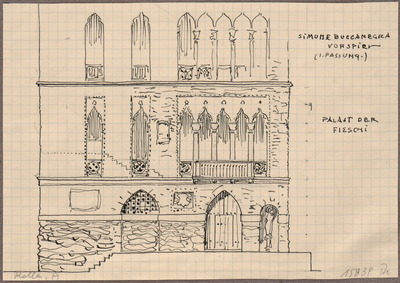 SIMONE BOCCANEGRA
VORSPIEL
(1. FASSUNG.)
PALAST DER
FIESCHI